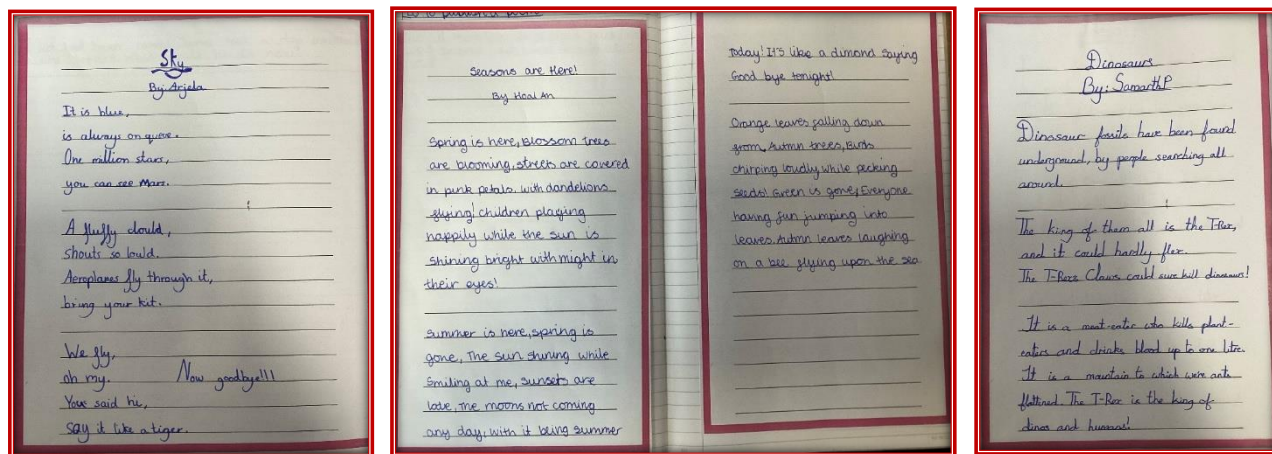 Sky
By: Arjela
It is blue,
is always on queue.
One million stars,
you can see Mars.
A fluffy clould,
shouts so lould.
Aeroplanes fly through it,
bring your kit.
We fly,
oh my. Now goodbye!!!
You said hi,
say it like a tiger.
to publish a poem
Seasons are Here!
By Hcal An
Spring is here, Blossom Trees
are blooming, streets are covered
in pink petals. with dandelions
flying! children playing
happily while the sun is
shining bright with might in
their eyes!
Summer is here, spring is
gone, The sun shining while
smiling at me, sunsets are
late, the moons not coming
any day, with it being summer
Today! It's like a dimond saying
Good bye tonight!
Orange leaves falling down
from, Autmn trees, Birds
chirping loudly while pecking
seeds! Green is gone, Everyone
having fun jumping into
leaves. Autmn leaves laughing
on a bee flying upon the sea
Dinosaurs
By: Samarth.P
Dinosaur fossils have been found
underground, by people searching all
around.
The king of them all is the T-Rex,
and it could hardly flex.
The T-Rexs Claws could sure kill dinosaurs!
It is a meat-eater who kills plant-
eaters and drinks blood up to one litre.
It is a mountain to which were ants
flattened. The T-Rex is the king of
dinos and humans!